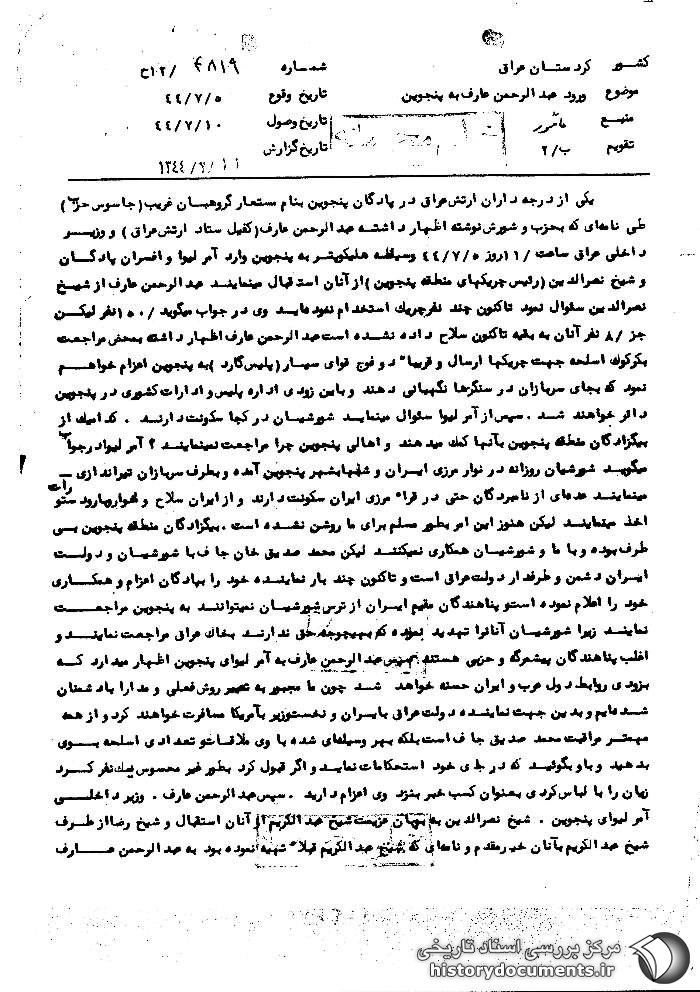 کشور کردستان عراق
شماره ۴۸۱۹ /۱۰۲ح
موضوع ورود عبدالرحمن عارف به پنجوین
تاریخ وقوع ۴۴/۷/۵
منبع مأمور
تاریخ وصول ۴۴/۷/۱۰
تقویم ب/۲
تاریخ گزارش ۱۳۴۴/۷/۱۱
یکی از درجه داران ارتش عراق در پادگان پنجوین بنام مستعار گروهبان غریب (جاسوس حزب)
طی نامه‌ای که بحزب و شورش نوشته اظهار داشته عبدالرحمن عارف (کفیل ستاد ارتش عراق) و وزیر
داخلی عراق ساعت /۱۱ روز ۴۴/۷/۵ وسیله هلیکوپتر به پنجوین وارد آمر لیوا و افسران پادگان
و شیخ نصرالدین (رئیس چریکهای منطقه پنجوین) از آنان استقبال مینمایند عبدالرحمن عارف از شیخ
نصرالدین سئوال نمود تاکنون چند نفر چریک استخدام نموده‌اید وی در جواب میگوید /۱۵۰ نفر لیکن
جز /۸۰ نفر آنان به بقیه تاکنون سلاح داده نشده است عبدالرحمن عارف اظهار داشته بمحض مراجعت
بکرکوک اسلحه جهت چریکها ارسال و قریباً دو فوج قوای سیار (پلیس گارد) به پنجوین اعزام خواهم
نمود که بجای سربازان در سنگرها نگهبانی دهند و باین زودی اداره پلیس و ادارات کشوری در پنجوین
دائر خواهند شد. سپس از آمر لیوا سئوال مینماید شورشیان در کجا سکونت دارند. کدامیک از
بیگزادگان منطقه پنجوین بآنها کمک میدهند و اهالی پنجوین چرا مراجعت نمینمایند؟ آمر لیوا در جواب
میگوید شورشیان روزانه در نوار مرزی ایران و شبها بشهر پنجوین آمده و بطرف سربازان تیراندازی
مینمایند عده‌ای از نامبردگان حتی در قراء مرزی ایران سکونت دارند و از ایران سلاح و خواروبار و دستورات
اخذ مینمایند لیکن هنوز این امر بطور مسلم برای ما روشن نشده است. بیگزادگان منطقه پنجوین بی
طرف بوده و با ما و شورشیان همکاری نمیکنند لیکن محمد صدیق خان جاف با شورشیان و دولت
ایران دشمن و طرفدار دولت عراق است و تاکنون چند بار نماینده خود را بپادگان اعزام و همکاری
خود را اعلام نموده است و پناهندگان مقیم ایران از ترس شورشیان نمیتوانند به پنجوین مراجعت
نمایند زیرا شورشیان آنانرا تهدید نموده که بهیچوجه حق ندارند بخاک عراق مراجعت نمایند و
اغلب پناهندگان پیشمرگه و حزبی هستند سپس عبدالرحمن عارف به آمر لیوای پنجوین اظهار میدارد که
بزودی روابط دول عرب و ایران حسنه خواهد شد چون ما مجبور به تغییر روش فعلی و مدارا با دشمنان
شده‌ایم و بدین جهت نماینده دولت عراق بایران و نخست‌وزیر بآمریکا مسافرت خواهند کرد و از همه
مهمتر مراقبت محمد صدیق جاف است بلکه بهر وسیله‌ای شده با وی ملاقات و تعدادی اسلحه بوی
بدهید و باو بگوئید که در جای خود استحکامات نماید و اگر قبول کرد بطور غیر محسوس یک نفر کرد
زبان را با لباس کردی بعنوان کسب خبر بنزد وی اعزام دارید. سپس عبدالرحمن عارف. وزیر داخلی
آمر لیوای پنجوین. شیخ نصرالدین به عزیمت شیخ عبدالکریم از آنان استقبال و شیخ رضا از طرف
شیخ عبدالکریم بآنان خیرمقدم و نامه‌ای که شیخ عبدالکریم قبلاً تهیه نموده بود به عبدالرحمن عارف
مرکز بررسی اسناد تاریخی
historydocuments.ir